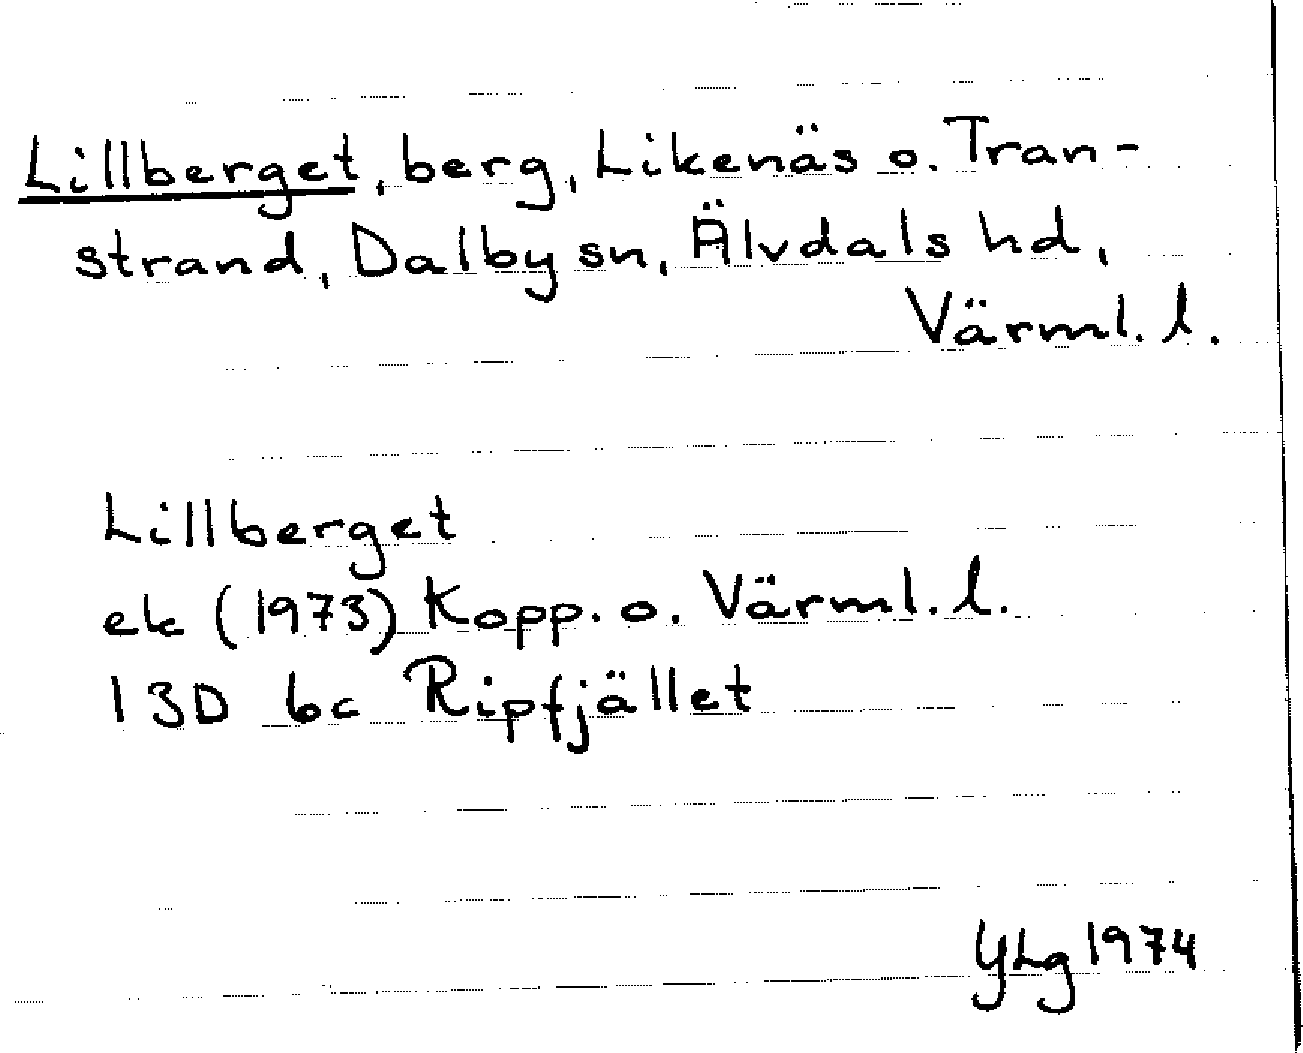 Lillberget, berg, Likenäs o. Tran-
strand, Dalby sn, Älvdals hd,
Värml. l.
Lillberget
ek (1973) Kopp. o. Värml. l.
13D 6c Ripfjället
YLg 1974